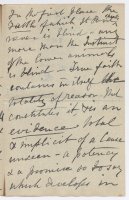 In the first place the
Faith which it
is blind - any
more than the instinct
of the lower animals
is blind - True faith
contains in itself the
totality of reason And
constitutes it, as an
evidence total
& implicit of a cause
unseen - a potency
& a promise so to say
which develops in